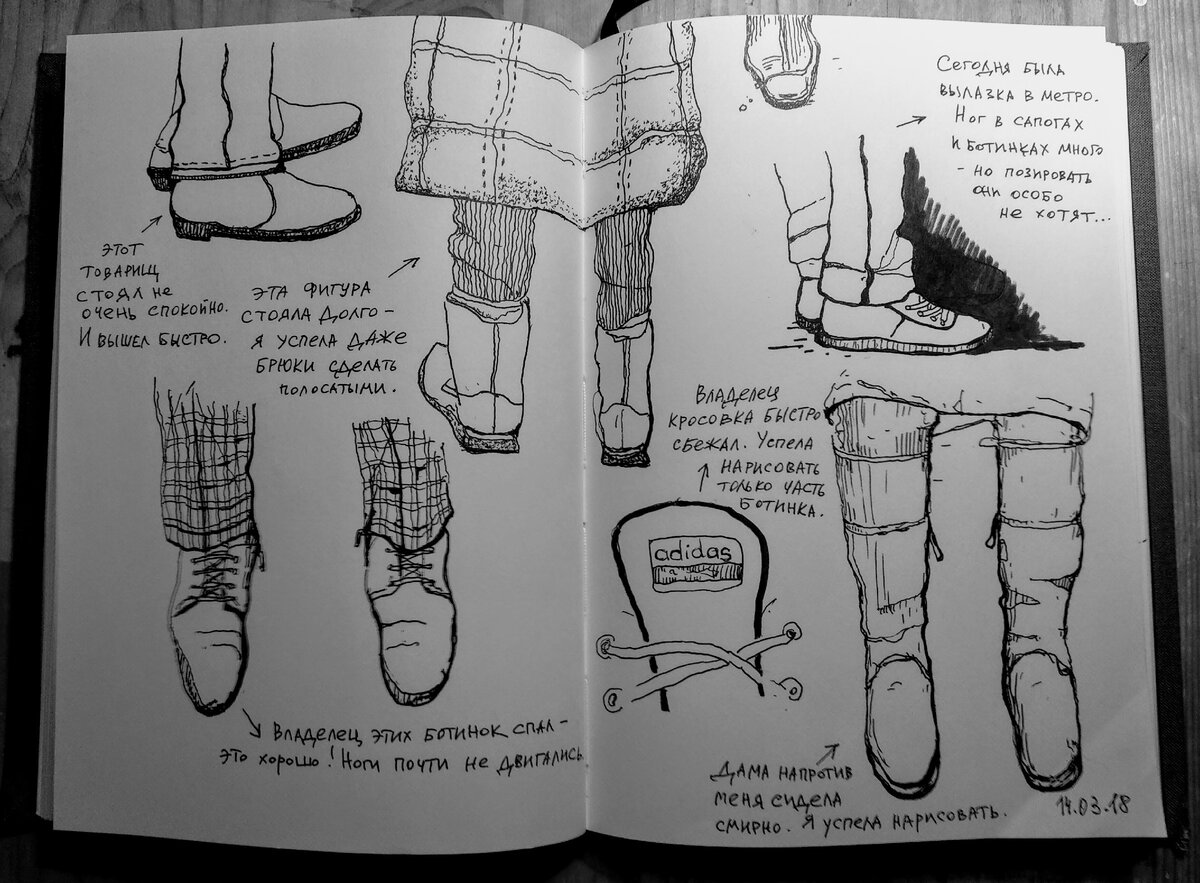 Этот
товарищ
стоял не
очень спокойно.
И вышел быстро.
Эта фигура
стояла долго –
я успела даже
брюки сделать
полосатыми.
Владелец этих ботинок спал –
это хорошо! Ноги почти не двигались.
Сегодня была
вылазка в метро.
Ног в сапогах
и ботинках много
- но позировать
они особо
не хотят...
Владелец
кросовка быстро
сбежал. Успела
нарисовать
только часть
ботинка.
adidas
Дама напротив
меня сидела
смирно. Я успела нарисовать.
14.03.18